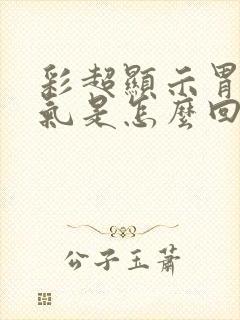 彩超顯示胃
氣是怎麼回
公子玉蕭